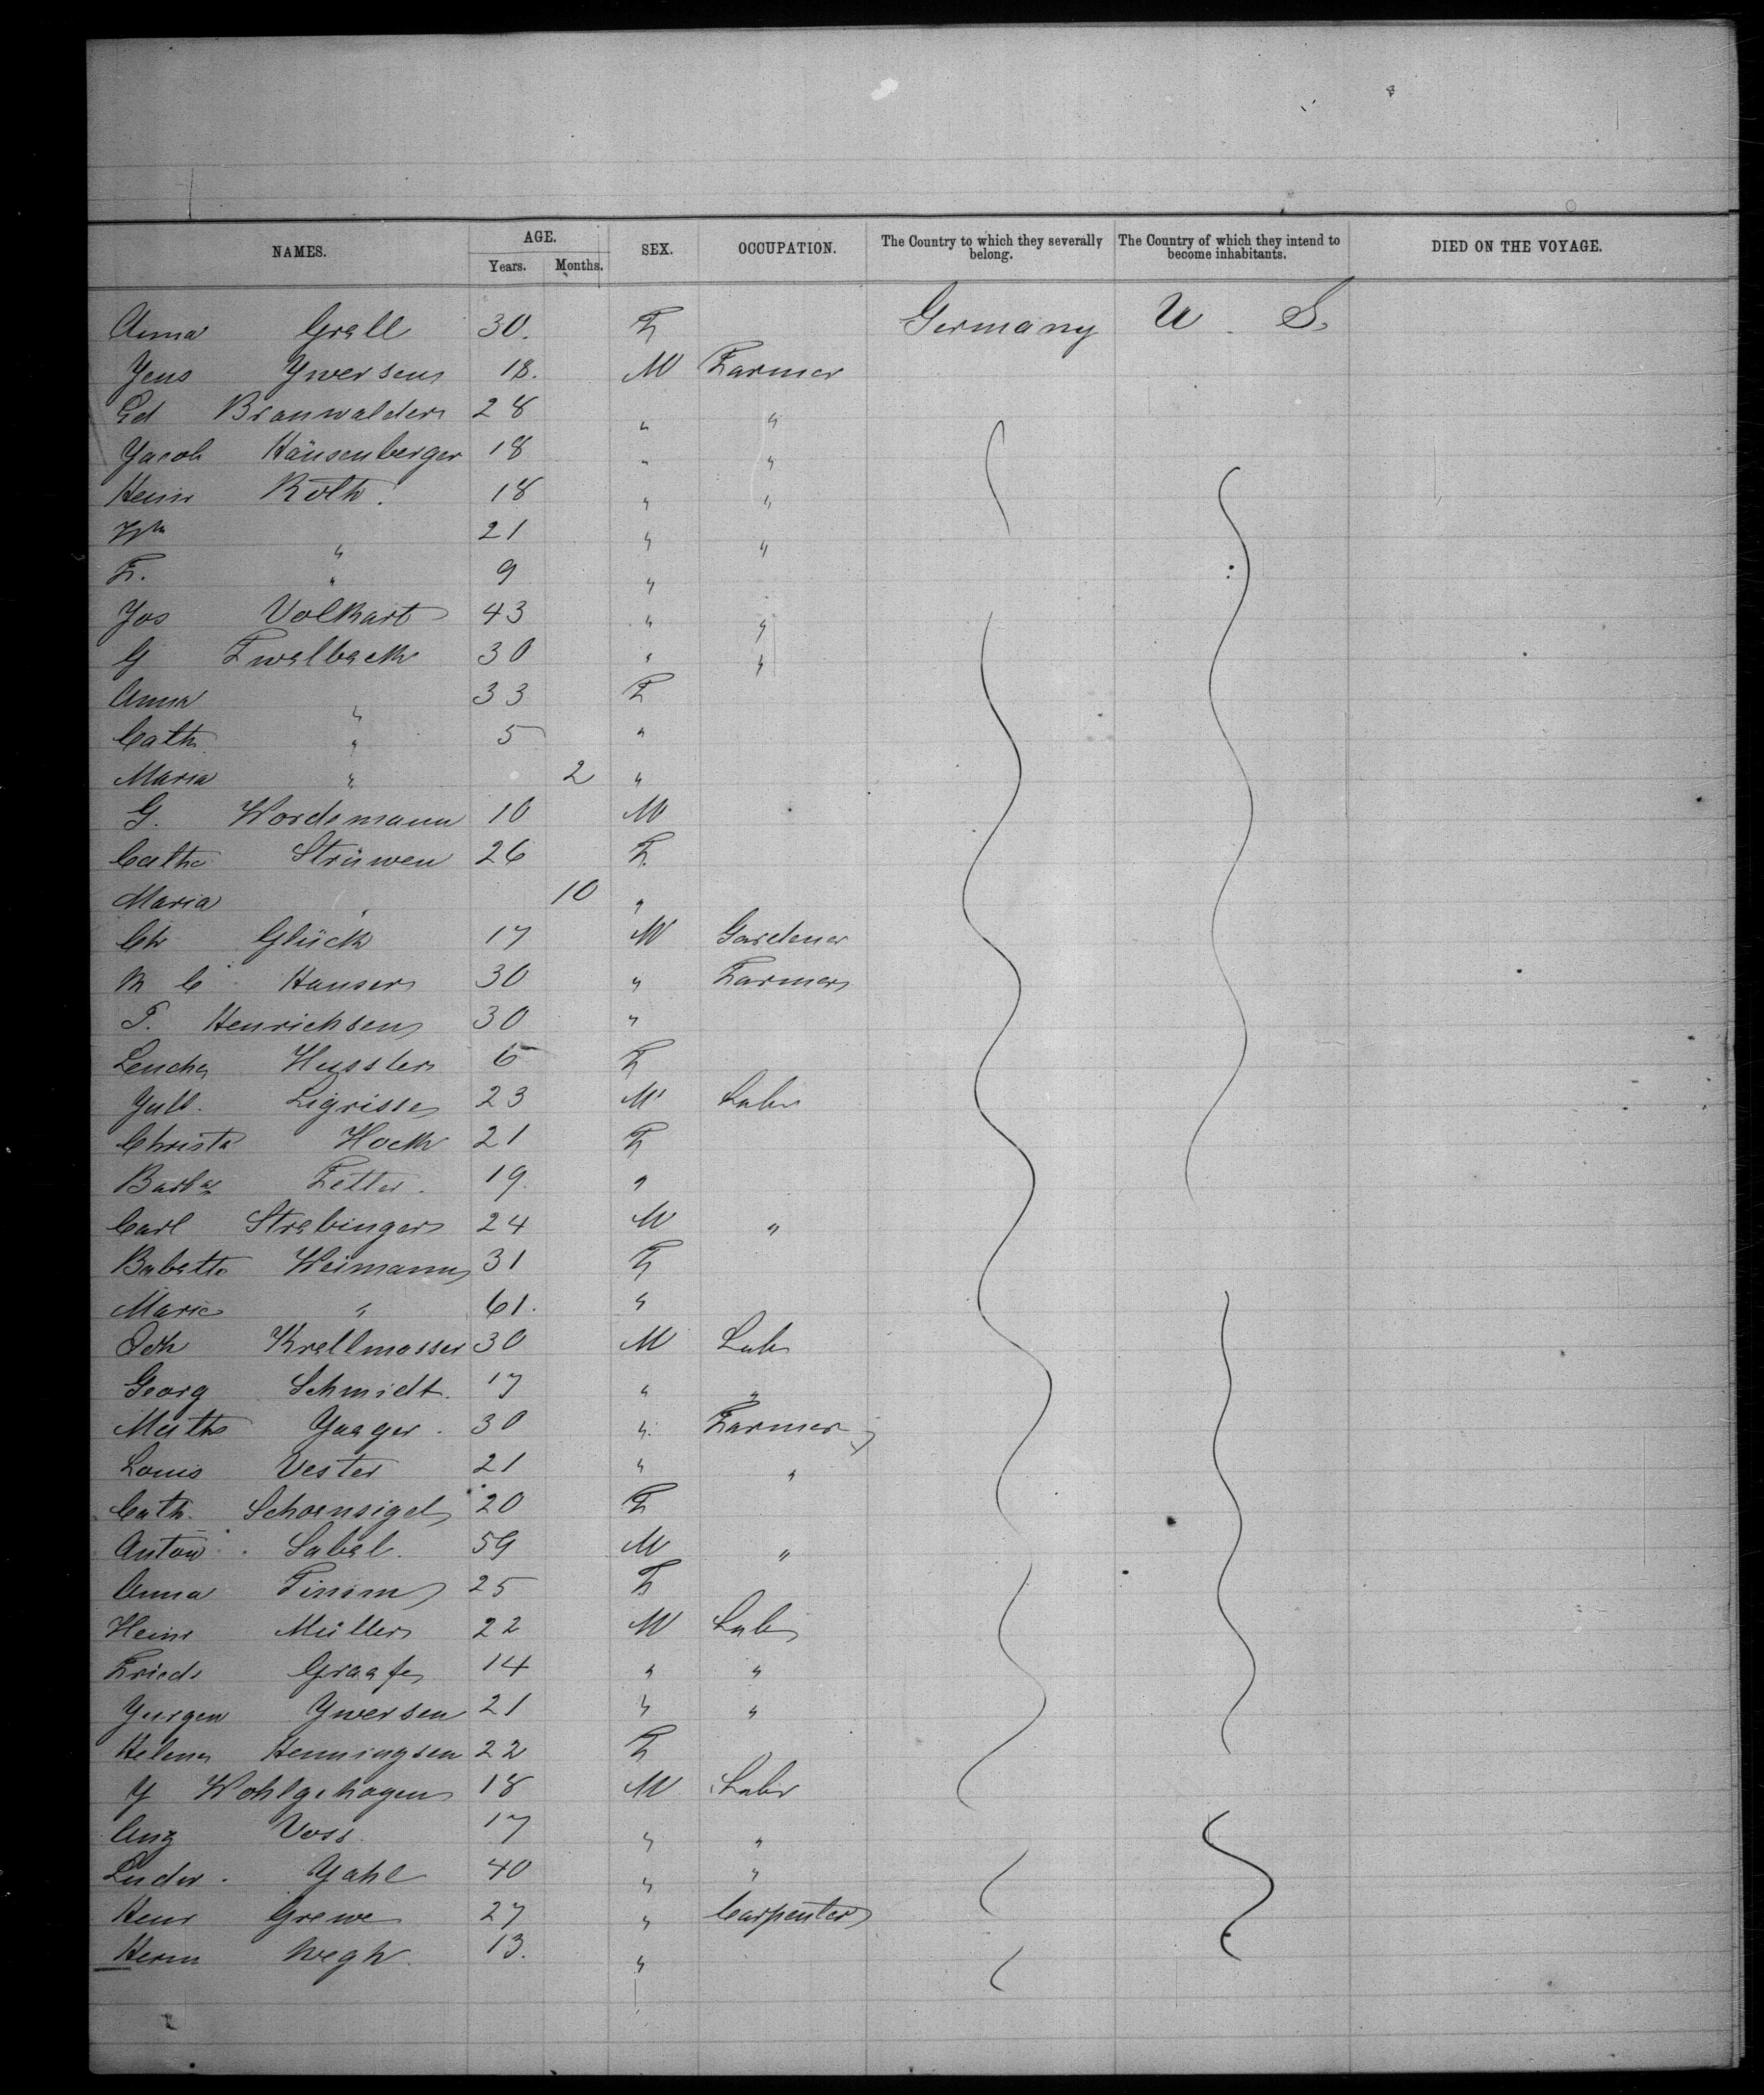 NAMES. AGE. Years. Months. SEX. OCCUPATION. The Country to which they severally belong. The Country of which they intend to become inhabitants. DIED ON THE VOYAGE.
Anna Grall 30. F Germany U. S.
Jens Ywersen 18. M Farmer
Ed Branwalder 28 " "
Jacob Hänsenberger 18 " "
Heinr Roth. 18 " "
Wm " 21 " "
F. " 9 "
Jos Volkart 43 " "
G Zwalback 30 " "
Anna " 33 F
Cath " 5 "
Maria " 2 "
G. Wordemann 10 M
Cathe Strüwen 26 F.
Maria " 10 "
Ch Glück 17 M Gardener
N C Hansen 30 " Farmer
P. Henrichsen 30 "
Hussler 6 F
Ligrisse 23 M Labr
Christa Hock 21 F
Barba Fetter. 19. "
Carl Strabinger 24 M "
Babette Weimann 31 F
Marie " 61. "
Joh Krallmosser 30 M Lab
Georg Schmidt. 17 " "
Math Yaager. 30 " Farmer
Louis Vester 21 " "
Cath. Schoensigel 20 F
Anton Sabel. 59 M "
Anna Timm 25 F
Heinr Müller 22 M Lab
Friedr Graafe 14 " "
Jurgen Ywersen 21 " "
Helena Henningsen 22 F
J Wohlgehagen 18 M Labr
Aug Voss 17 " "
Luder. Yahl 40 " "
Henr Grewe 27 " Carpenter
Herm Wegh. 13. "